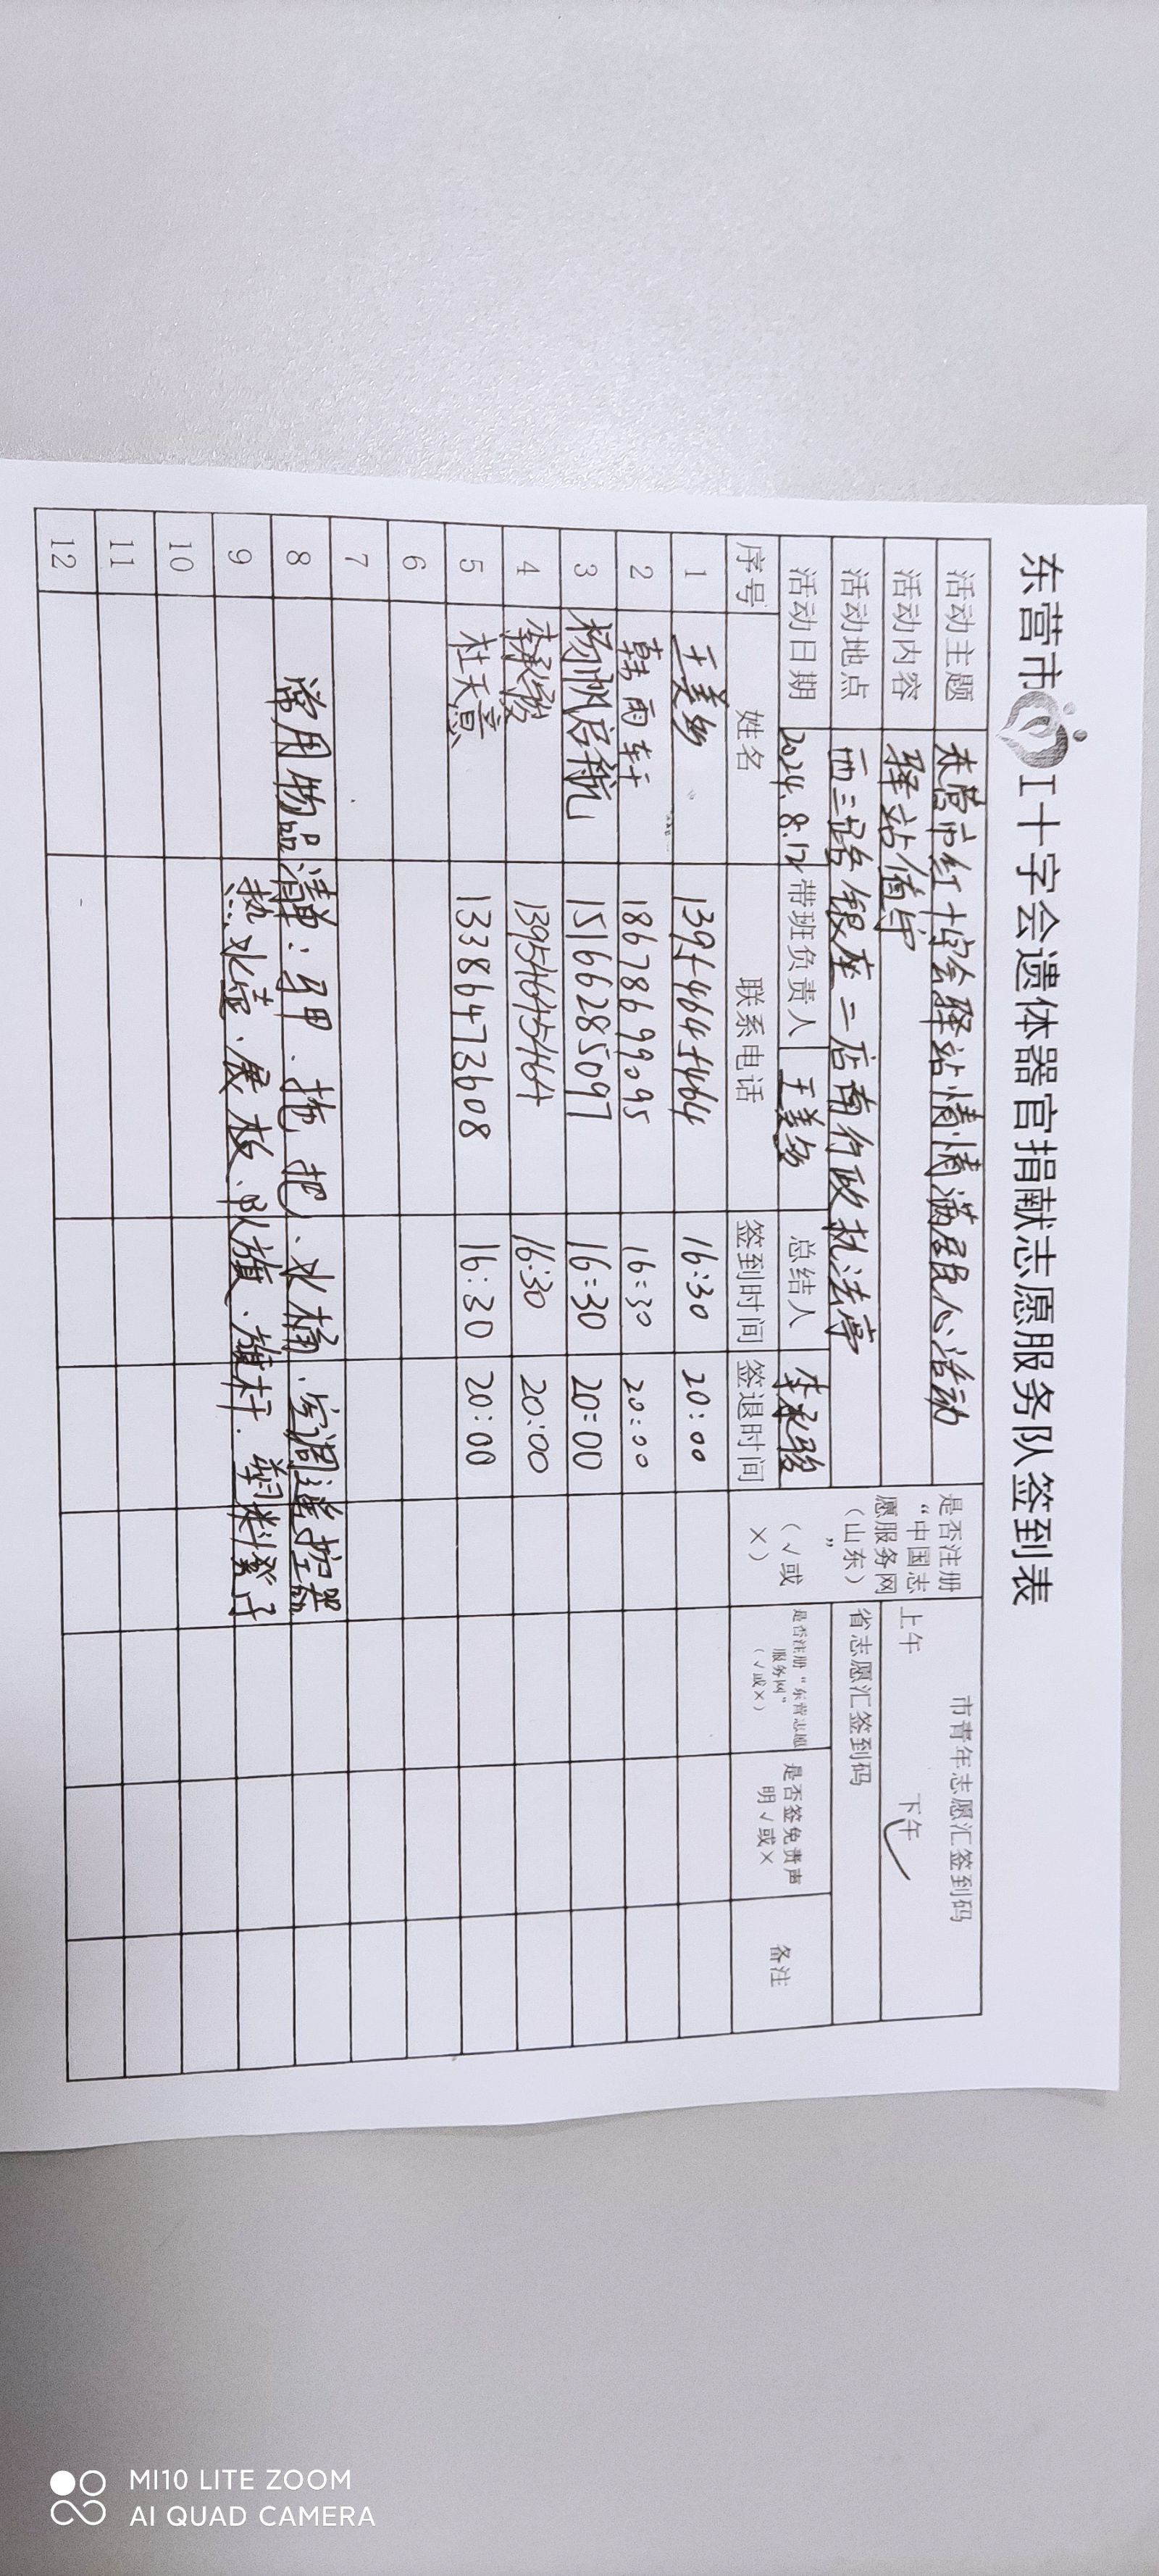 东营市 工十字会遗体器官捐献志愿服务队签到表
活动主题 东营市红十字会驿站情情满 人心活动 是否注册“中国志愿服务网（山东）” （√或×） 市青年志愿汇签到码
活动内容 驿站值守 上午 下午 ✓
活动地点 西三路银座二店南行政执法亭 省志愿汇签到码
活动日期 2024.8.12 带班负责人 王美 总结人 李永骏
序号 姓名 联系电话 签到时间 签退时间 是否注册“东营志愿服务网”（√或×） 是否签免责声明√或× 备注
1 王美 13954645464 16:30 20:00
2 韩雨轩 18678699095 16:30 20:00
3 杨帆启航 15166285097 16:30 20:00
4 李永骏 13954645464 16:30 20:00
5 杜天意 13386473608 16:30 20:00
6
7
8 常用物品清单: 马甲、拖把、水桶、空调遥控器
9 热水壶、展板、队旗、旗杆、塑料凳子
10
11
12
MI10 LITE ZOOM
AI QUAD CAMERA